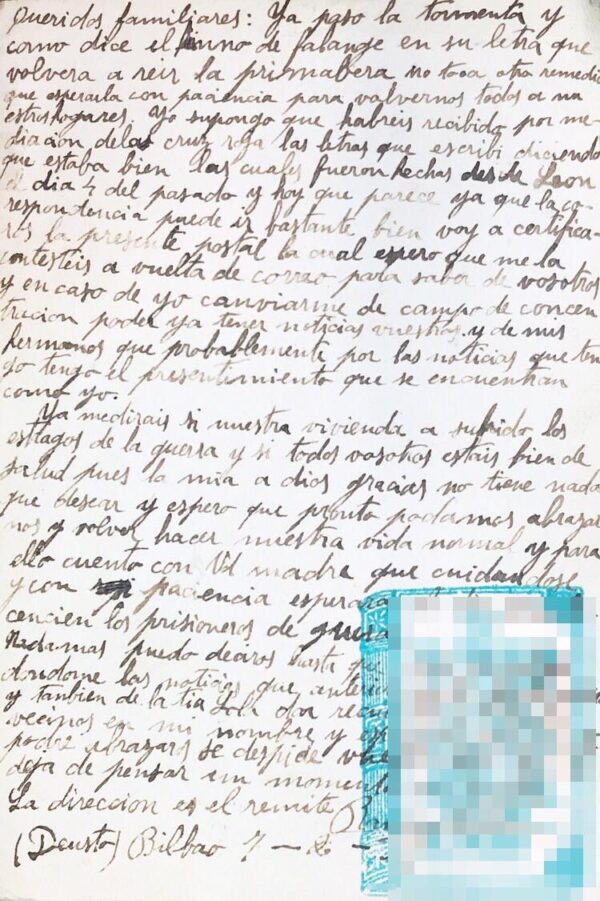 Queridos familiares: Ya paso la tormenta y
como dice el himno de falange en su letra que
volvera a reir la primabera no toca otro remedio
que esperarla con paciencia para volvernos todos a nu
estros hogares. Yo supongo que habreis recibido por me-
diacion de la cruz roja las letras que escribi diciendo
que estaba bien las cuales fueron hechas desde Leon
el dia 4 del pasado y hoy que parece ya que la co-
respondencia puede ir bastante bien voy a certifica-
ros la presente postal la cual espero que me la
contesteis a vuelta de correo para saber de vosotros
y en caso de yo canviarme de campo de concen
tracion poder ya tener noticias vuestras y de mis
hermanos que probablemente por las noticias que ten
go tengo el presentimiento que se encuentran
como yo.
Ya me dirais si nuestra vivienda a sufrido los
estragos de la guerra y si todos vosotros estais bien de
salud pues la mia a dios gracias no tiene nada
que desear y espero que pronto podamos abrazar
nos y volver hacer nuestra vida normal y para
ello cuento con Vd madre que cuidandose
y con paciencia esperara
cencien los prisioneros de guerra
Nadamas puedo deciros hasta
dandome las noticias que
y tambien de la tia dar
vecinos en mi nombre y
podre abrazaros se despide
deja de pensar un
La direccion es el remite
(Deusto) Bilbao 7 -